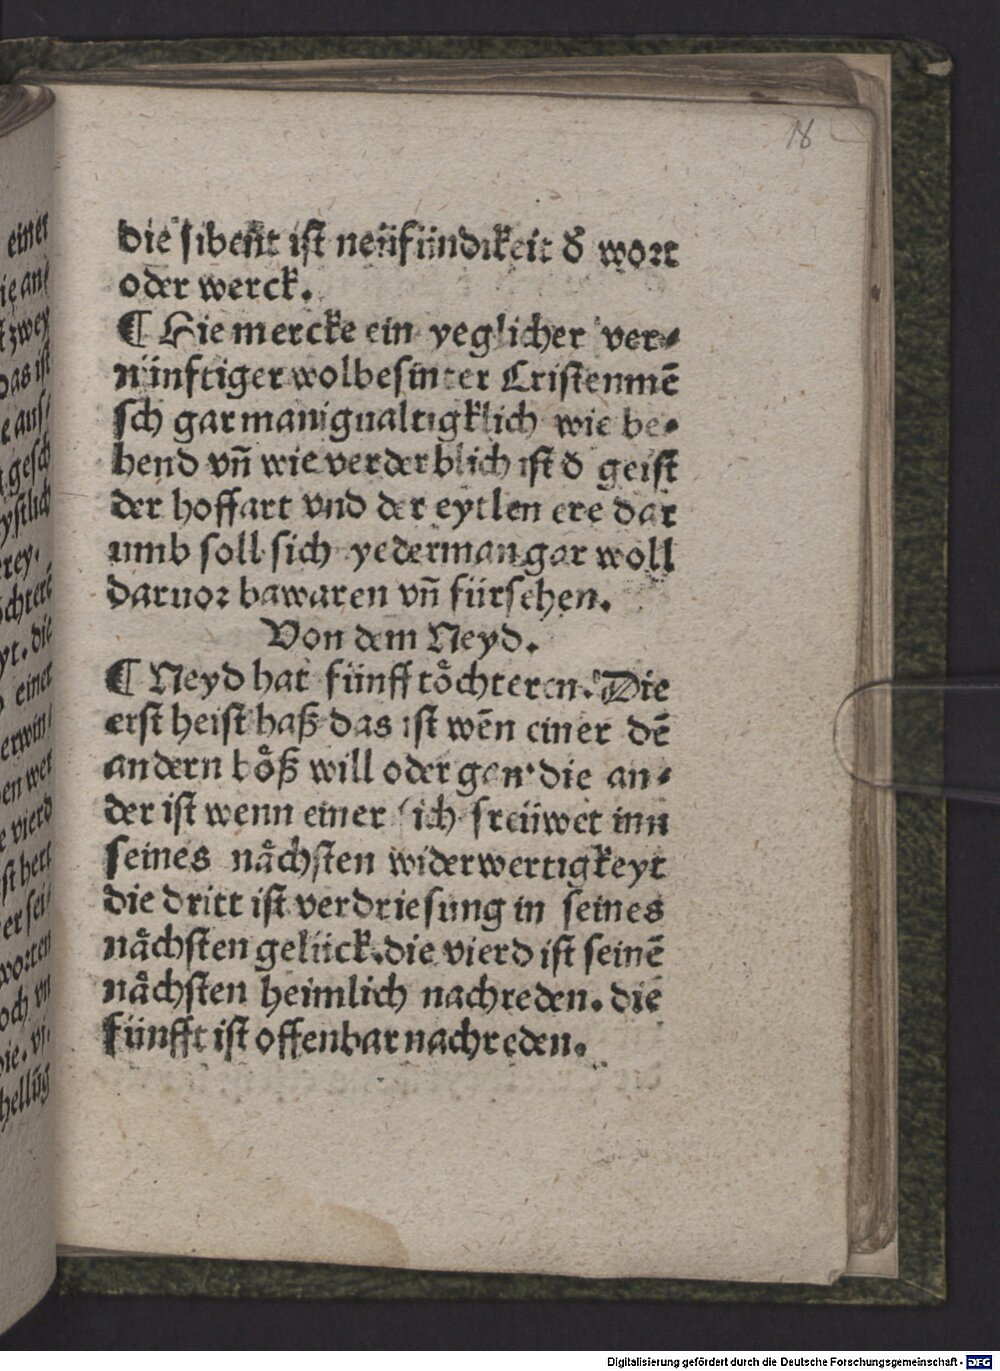 18
die sibent ist neüfündikeit d' wort
oder werck.
¶ Hie mercke ein yeglicher ver⸗
nünftiger wolbesinter Cristenmē
sch gar manigualtigklich wie be⸗
hend vn̄ wie verderblich ist d' geist
der hoffart vnd der eytlen ere dar
umb soll sich yederman gar woll
daruor bawaren vn̄ fürsehen.
Von dem Neyd.
¶ Neyd hat fünff toͤchteren. Die
erst heist haß das ist wēn einer dē
andern boͤß will oder gan. die an⸗
der ist wenn einer sich freüwet inn
seines naͤchsten widerwertigkeyt
die dritt ist verdriesung in seines
naͤchsten gelück. die vierd ist seinē
naͤchsten heimlich nachreden. die
fünfft ist offenbar nachreden.
einer
zwey
das ist
gesch
ystlich
rey.
yt. die
einer
vierd
worten
Digitalisierung gefördert durch die Deutsche Forschungsgemeinschaft - DFG